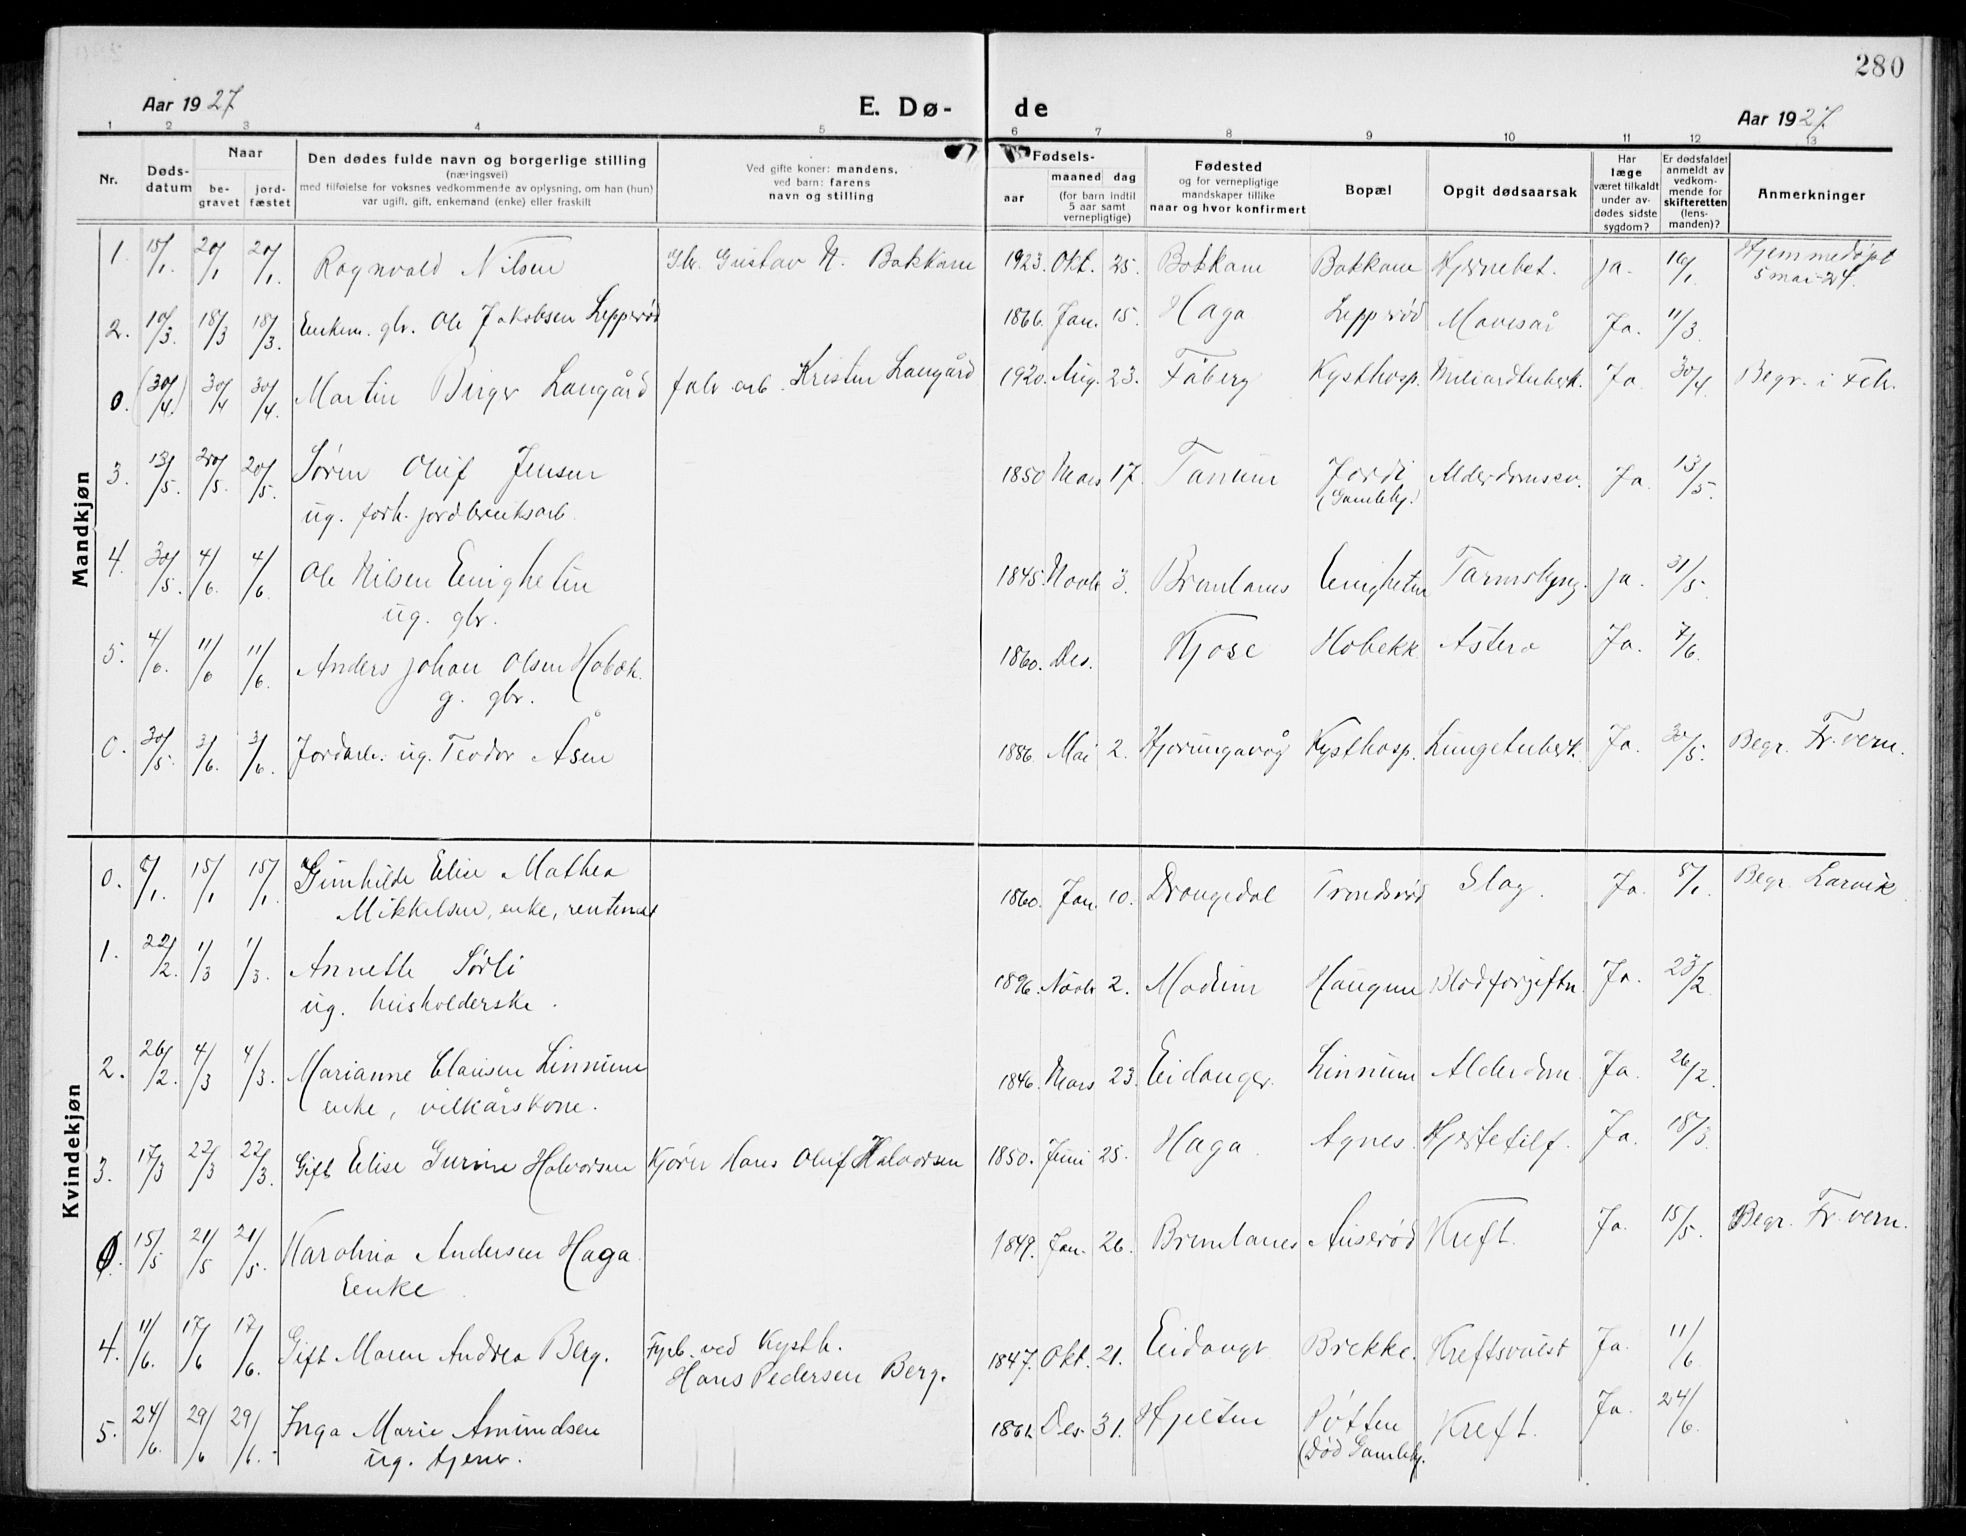 280
Aar 1927
E. Dø-
de
Aar 1927.
1 2 3 4 5 6 7 8 9 10 11 12 13
Nr.
Døds-
datum
Naar
be-
gravet
jord-
fæstet
Den dødes fulde navn og borgerlige stilling
(næringsvei)
med tilføielse for voksnes vedkommende av oplysning, om han (hun)
var ugift, gift, enkemand (enke) eller fraskilt
Ved gifte koner: mandens,
ved barn: farens
navn og stilling
Fødsels-
aar
maaned dag
(for barn indtil
5 aar samt
vernepligtige)
Fødested
og for vernepligtige
mandskaper tillike
naar og hvor konfirmert
Bopæl
Opgit dødsaarsak
Har
læge
været tilkaldt
under av-
dødes sidste
sygdom?
Er dødsfaldet
anmeldt av
vedkom-
mende for
skifteretten
(lens-
manden)?
Anmerkninger
Mandkjøn
1. 15/1. 20/1 20/1. Ragnvald Nilsen Gbr. Gustav N. Bakkane 1923. Okt. 25. Bakkane Bakkane Hjernebet. ja. 16/1. Hjemmedøpt
5 mai-24.
2. 10/3. 18/3 18/3. Enkem. gbr. Ole Jakobsen Lepperød 1866. Jan. 15. Haga Lepperød Mavesår Ja. 11/3
0. (30/4.) 30/4 30/4. Martin Birger Laugård fabr. arb. Kristen Laugård 1920. Aug. 23. Fåberg Kysthosp. Miliærtuberk. Ja 30/4. Begr. i
3. 13/5. 20/5. 20/5. Søren Oluf Jensen 1850 Mars 17. Tanum Jordi Alderdomssv. Ja 13/5.
ug. forh. jordbruksarb. (Gamlehj.)
4. 30/5. 4/6. 4/6. Ole Nilsen Enigheten 1845. Novbr 3. Brunlanes Enigheten Tarmslyng. ja. 31/5.
ug. gbr.
5. 4/6. 11/6 11/6. Anders Johan Olsen Hobæk. 1860. Des. Kjose Hobekk. Ja. 7/6.
g. gbr.
0. 30/5. 3/6. 3/6. Jordarb. ug. Teodor Åsen 1886. Mai 2. Hjørungavåg Kysthosp. Lungetuberk. Ja. 30/5. Begr. Fr.vern.
Kvindekjøn
0. 5/1. 15/1 15/1. Gunhilde Elise Mathea 1860. Jan. 10. Drangedal Trondsrød Slag. Ja. 5/1. Begr. Larvik
Mikkelsen, enke,
1. 22/2. 1/3 1/3. Annette Sørli 1896. Novbr 2. Modum Haugene Blodforgiftn. Ja. 23/2.
ug. husholderske.
2. 26/2. 4/3 4/3. Marianne Clausen Linnum 1846. Mars 23. Eidanger Linnum Alderdom. Ja. 26/2.
enke, vilkårskone.
3. 17/3 22/3 22/3. Gift Elise Gurine Halvorsen Kjører Hans Oluf Halvorsen 1850. Juni 25. Haga Agnes. Hjertefilf. Ja. 18/3.
0. 15/5 21/5 21/5. Karolina Andersen Haga. 1849. Jan. 26. Brunlanes Auserød Kreft. Ja. 15/5. Begr. Fr.vern.
Enke.
4. 11/6. 17/6 17/6. Gift Maren Andrea Berg. Fyrb. ved Kysth. 1847. Okt. 21. Eidangr Brekke. Kreftsvulst Ja. 11/6
Hans Pedersen Berg.
5. 24/6. 29/6 29/6. Inga Marie Amundsen 1861. Des. 31. Pøtten Kreft. Ja. 24/6
ug. tjener. (Død Gamlehj.